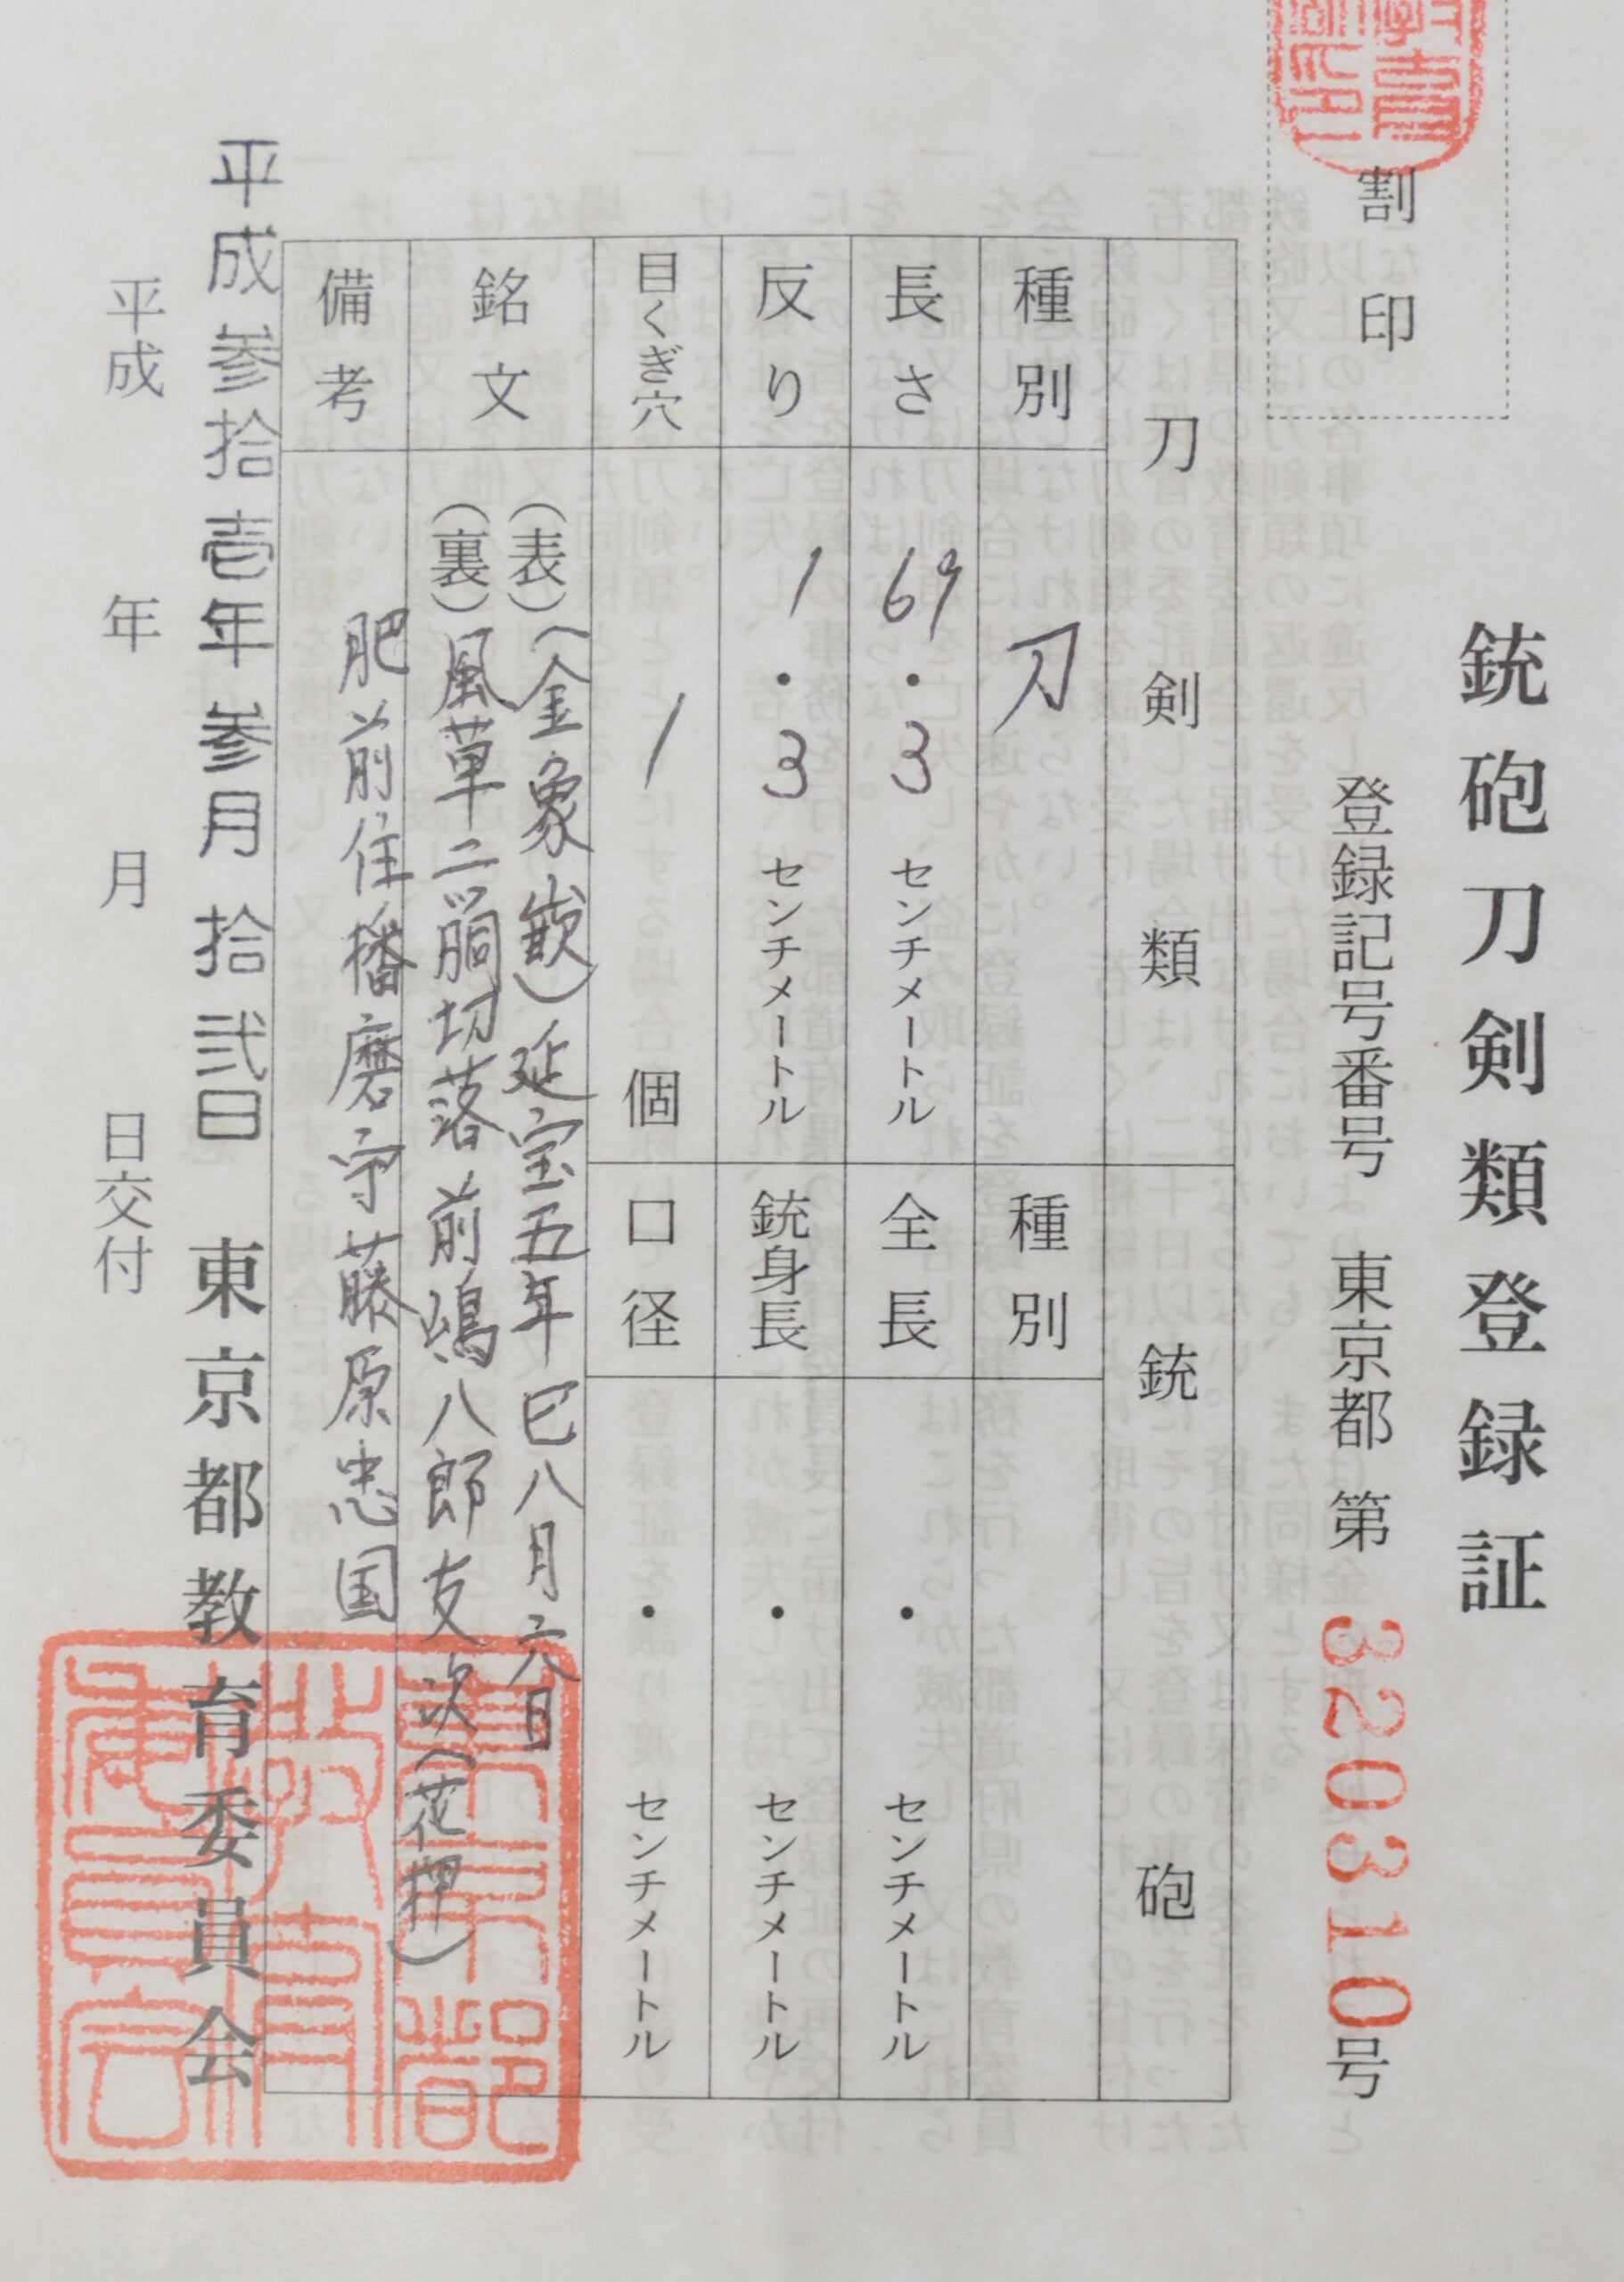 銃砲刀剣類登録証
登録記号番号 東京都 第 320310号
割印
刀剣類 銃砲
種別 刀 種別
長さ 69.3 センチメートル 全長 ・ センチメートル
反り 1.3 センチメートル 銃身長 ・ センチメートル
目くぎ穴 1 個 口径 ・ センチメートル
銘文 (表)(金象嵌)延宝五年巳八月六日
(裏)風草二ツ胴切落前嶋八郎友次(花押)
備考 肥前住播磨守藤原忠国
平成参拾壱年参月拾弐日 東京都教育委員会
平成 年 月 日交付